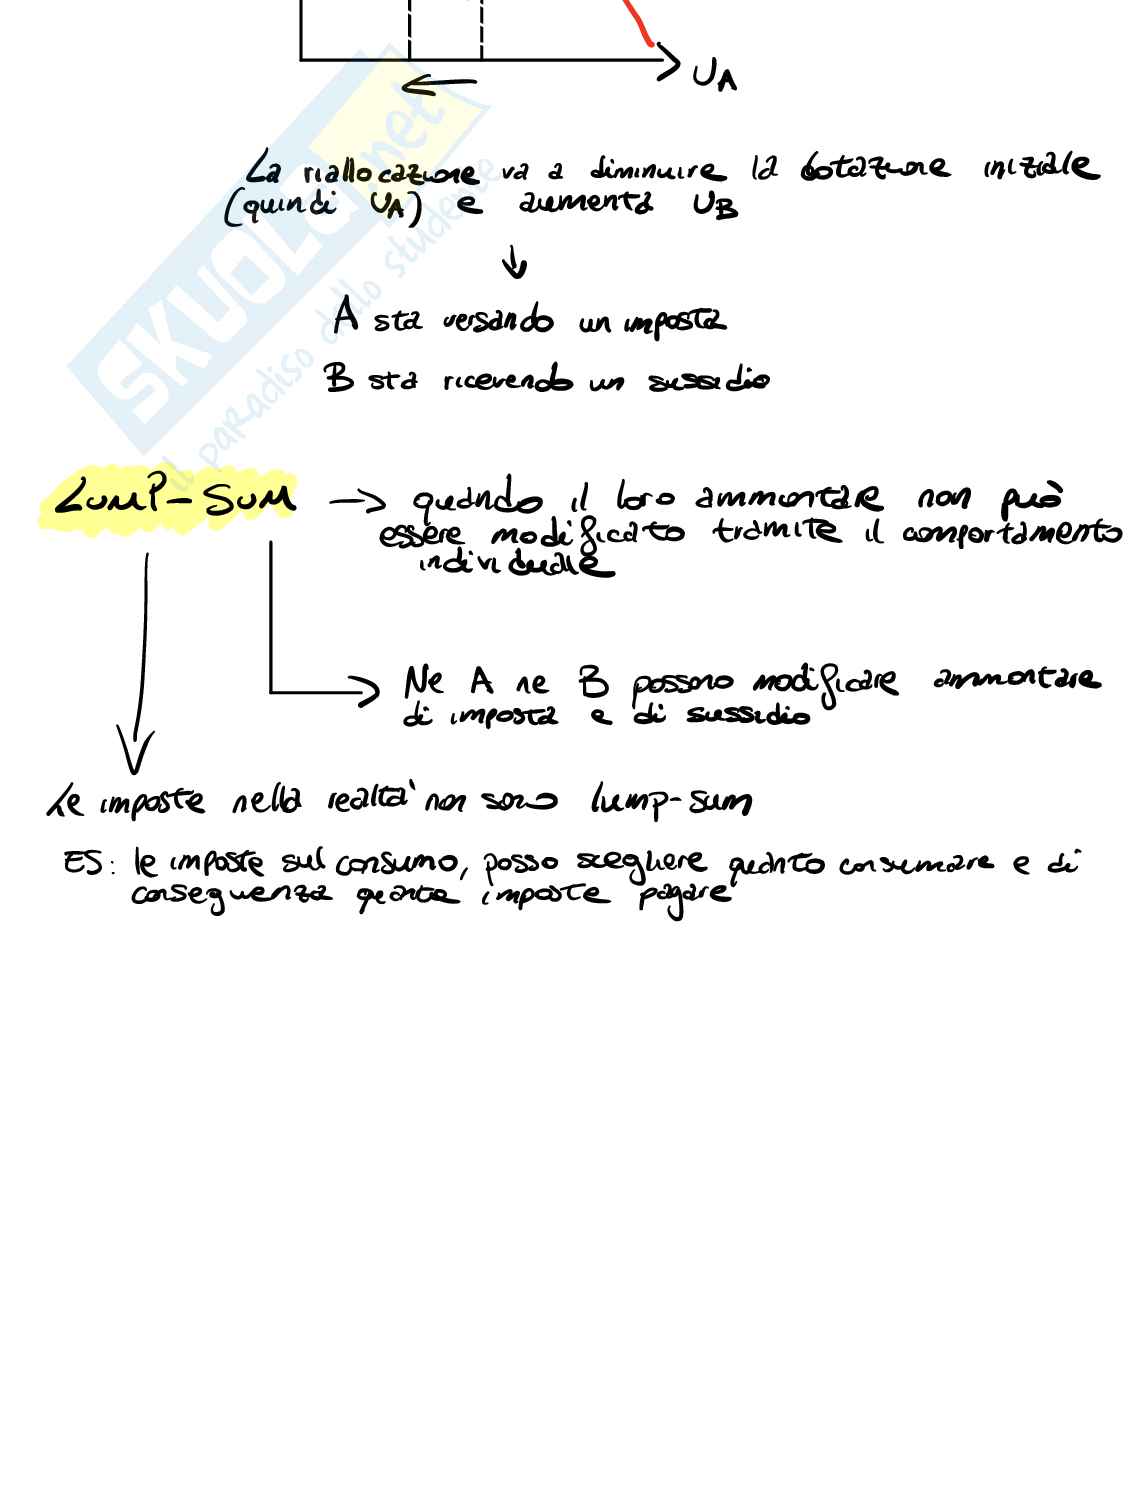 UA
La riallocazione va a diminuire la dotazione iniziale
(quindi UA) e aumenta UB
A sta versando un imposta
B sta ricevendo un sussidio
LUMP-SUM → quando il loro ammontare non può
essere modificato tramite il comportamento
individuale
Ne A ne B possono modificare ammontare
di imposta e di sussidio
Le imposte nella realtà non sono lump-sum
ES: le imposte sul consumo, posso scegliere quanto consumare e di
conseguenza quante imposte pagare
SKUOLA.net
il paradiso dello studente